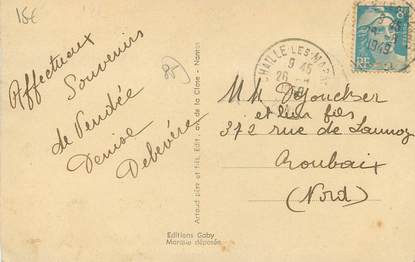 15€
85
Affectueux
Souvenirs
de Vendée
Denise
Delevéne
Artaud père et fils, Edit., av. de la Close - Nantes
Editions Gaby
Marque déposée
CHAILLE-LES-MARAIS
9 45
26
1949
RF
et leur fils
372 rue de Launoy
Roubaix
(Nord)